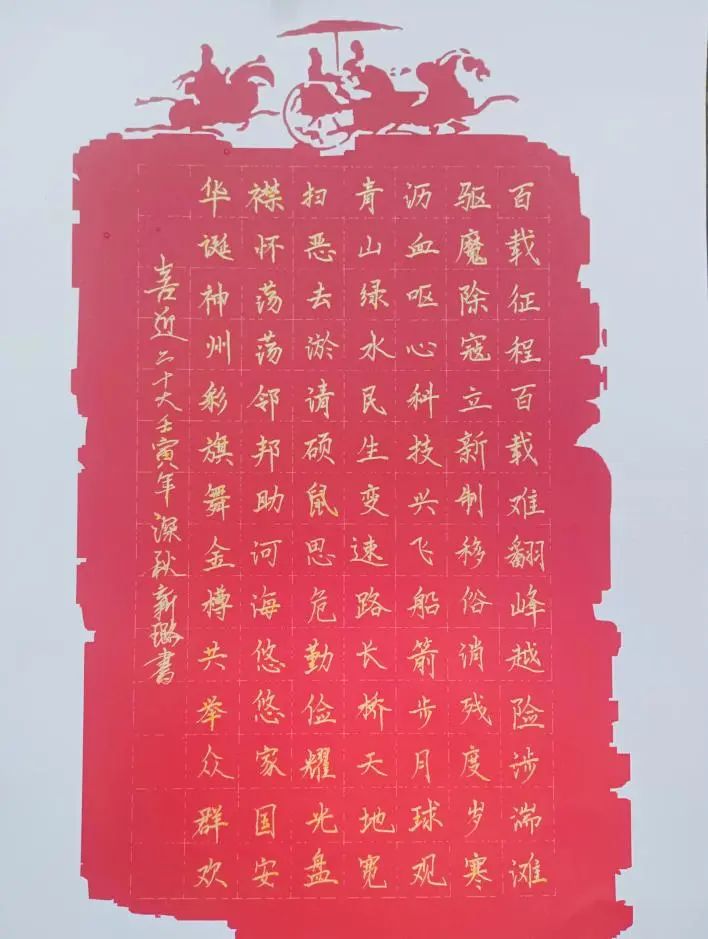 百载征程百载难翻峰越险涉湍滩
驱魔除寇立新制移俗消残度岁寒
沥血呕心科技兴飞船箭步月球观
青山绿水民生变速路长桥天地宽
扫恶去淤清硕鼠思危勤俭耀光盘
襟怀荡荡邻邦助河海悠悠家国安
华诞神州彩旗舞金樽共举众群欢
喜迎二十大壬寅年深秋新璐书